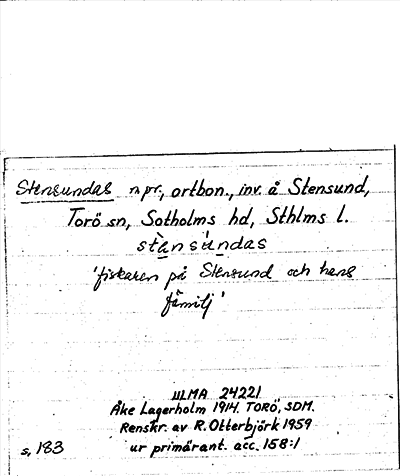 Stensundas n pr., ortbon., inv. å Stensund,
Torö sn, Sotholms hd, Sthlms l.
stànsúndas
'fiskaren på Stensund och hans
familj'
ULMA 24221
Åke Lagerholm 1914. TORÖ, SDM.
Renskr. av R. Otterbjörk 1959
s. 183 ur primärant. acc. 158:1